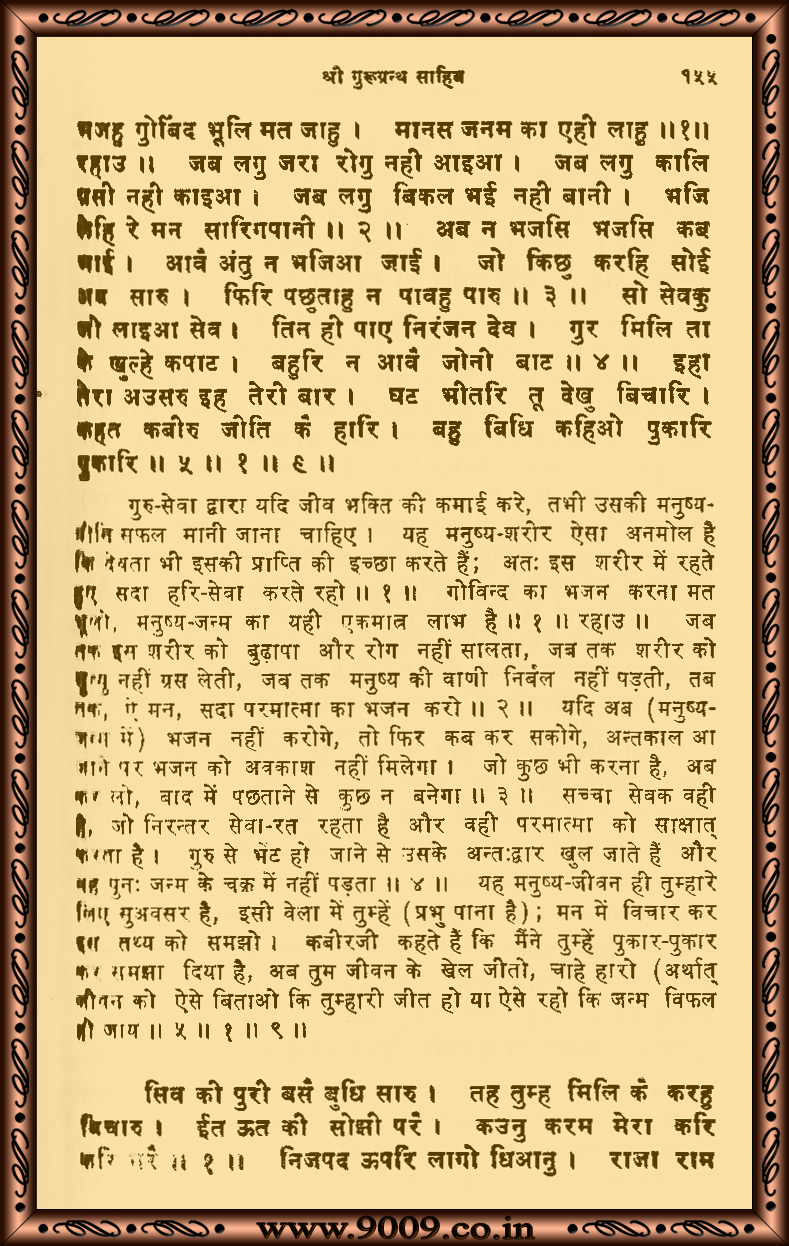 श्री गुरूग्रन्थ साहिब १५५
भजहु गोबिंद भूलि मत जाहु । मानस जनम का एही लाहु ॥१॥
रहाउ ॥ जब लगु जरा रोगु नही आइआ । जब लगु कालि
ग्रसी नही काइआ । जब लगु बिकल भई नही बानी । भजि
लेहि रे मन सारिगपानी ॥ २ ॥ अब न भजसि भजसि कब
भाई । आवै अंतु न भजिआ जाई । जो किछु करहि सोई
अब सारु । फिरि पछुताहु न पावहु पारु ॥ ३ ॥ सो सेवकु
जो लाइआ सेव । तिन ही पाए निरंजन देव । गुर मिलि ता
के खुल्हे कपाट । बहुरि न आवै जोनी बाट ॥ ४ ॥ इहा
तेरा अउसरु इह तेरी बार । घट भीतरि तू देखु बिचारि ।
कहत कबीरु जीति कै हारि । बहु बिधि कहिओ पुकारि
पुकारि ॥ ५ ॥ १ ॥ ९ ॥
गुरु-सेवा द्वारा यदि जीव भक्ति की कमाई करे, तभी उसकी मनुष्य-
योनि सफल मानी जाना चाहिए । यह मनुष्य-शरीर ऐसा अनमोल है
कि देवता भी इसकी प्राप्ति की इच्छा करते हैं; अतः इस शरीर में रहते
हुए सदा हरि-सेवा करते रहो ॥ १ ॥ गोविन्द का भजन करना मत
भूलो, मनुष्य-जन्म का यही एकमात्र लाभ है ॥ १ ॥ रहाउ ॥ जब
तक इस शरीर को बुढ़ापा और रोग नहीं सालता, जब तक शरीर को
मृत्यु नहीं ग्रस लेती, जब तक मनुष्य की वाणी निर्बल नहीं पड़ती, तब
तक, ऐ मन, सदा परमात्मा का भजन करो ॥ २ ॥ यदि अब (मनुष्य-
जन्म में) भजन नहीं करोगे, तो फिर कब कर सकोगे, अन्तकाल आ
जाने पर भजन को अवकाश नहीं मिलेगा । जो कुछ भी करना है, अब
कर लो, बाद में पछताने से कुछ न बनेगा ॥ ३ ॥ सच्चा सेवक वही
है, जो निरन्तर सेवा-रत रहता है और वही परमात्मा को साक्षात्
करता है । गुरु से भेंट हो जाने से उसके अन्तःद्वार खुल जाते हैं और
वह पुनः जन्म के चक्र में नहीं पड़ता ॥ ४ ॥ यह मनुष्य-जीवन ही तुम्हारे
लिए सुअवसर है, इसी वेला में तुम्हें (प्रभु पाना है); मन में विचार कर
इस तथ्य को समझो । कबीरजी कहते हैं कि मैंने तुम्हें पुकार-पुकार
कर समझा दिया है, अब तुम जीवन के खेल जीतो, चाहे हारो (अर्थात्
जीवन को ऐसे बिताओ कि तुम्हारी जीत हो या ऐसे रहो कि जन्म विफल
हो जाय ॥ ५ ॥ १ ॥ ९ ॥
सिव की पुरी बसै बुधि सारु । तह तुम्ह मिलि कै करहु
बिचारु । ईत ऊत की सोझी परै । कउनु करम मेरा करि
करि मरै ॥ १ ॥ निजपद ऊपरि लागो धिआनु । राजा राम
www.9009.co.in